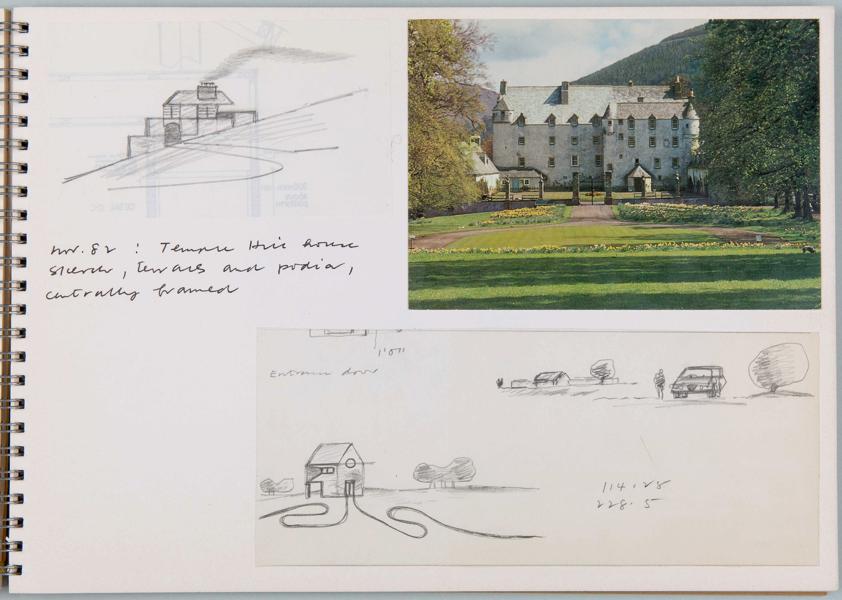 Nov. 82 : Temple Hill house
sketch, terraces and podia,
centrally framed
1'0"
Entrance door
114.25
228.5